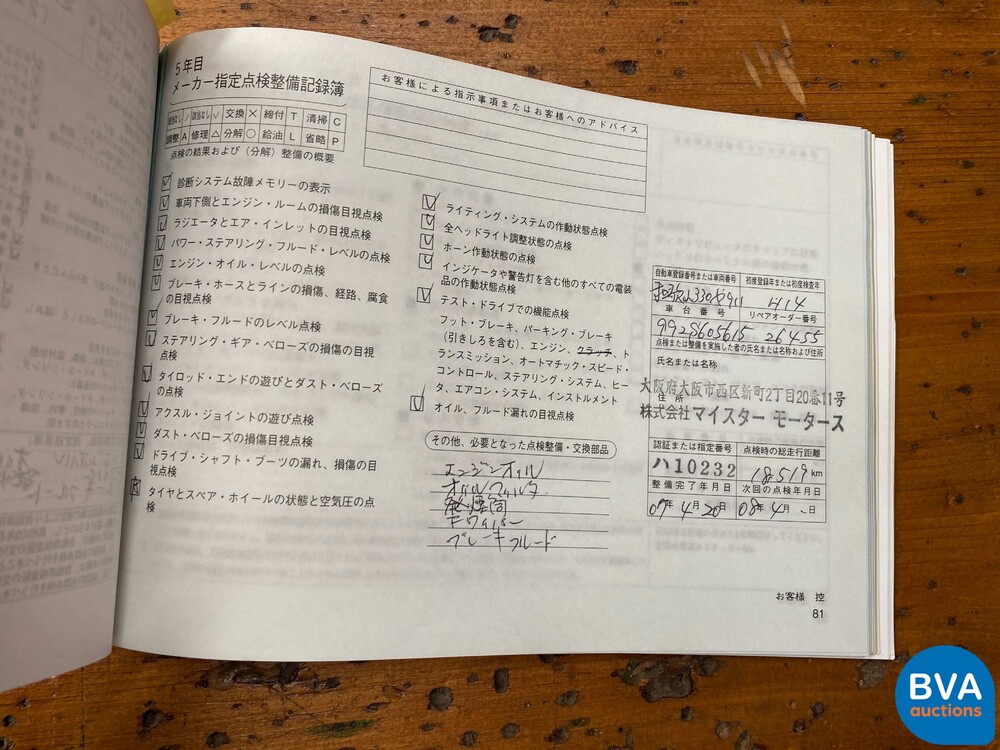 5年目
メーカー指定点検整備記録簿
該当なし / 該当なし ✓ 交換 × 締付 T 清掃 C
調整 A 修理 △ 分解 ○ 給油 L 省略 P
点検の結果および(分解)整備の概要
診断システム故障メモリーの表示
車両下側とエンジン・ルームの損傷目視点検
ラジエータとエア・インレットの目視点検
パワー・ステアリング・フルード・レベルの点検
エンジン・オイル・レベルの点検
ブレーキ・ホースとラインの損傷、経路、腐食
の目視点検
ブレーキ・フルードのレベル点検
ステアリング・ギア・ベローズの損傷の目視
点検
タイロッド・エンドの遊びとダスト・ベローズ
の点検
アクスル・ジョイントの遊び点検
ダスト・ベローズの損傷目視点検
ドライブ・シャフト・ブーツの漏れ、損傷の目
視点検
タイヤとスペア・ホイールの状態と空気圧の点
検
お客様による指示事項またはお客様へのアドバイス
ライティング・システムの作動状態点検
全ヘッドライト調整状態の点検
ホーン作動状態の点検
インジケータや警告灯を含む他のすべての電装
品の作動状態点検
テスト・ドライブでの機能点検
フット・ブレーキ、パーキング・ブレーキ
(引きしろを含む)、エンジン、クラッチ、ト
ランスミッション、オートマチック・スピード・
コントロール、ステアリング・システム、ヒー
タ、エアコン・システム、インストルメント
オイル、フルード漏れの目視点検
その他、必要となった点検整備・交換部品
エンジンオイル
オイルフィルタ
発煙筒
Fワイパー
ブレーキフルード
自動車登録番号または車両番号 初度登録年または初度検査年
330 H14
車台番号 リペアオーダー番号
992S605615 26455
点検または整備を実施した者の氏名または名称および住所
氏名または名称
大阪府大阪市西区新町2丁目20番11号
住所
株式会社マイスター モータース
認証または指定番号 点検時の総走行距離
ハ10232 18,519 km
整備完了年月日 次回の点検年月日
07年4月20日 08年4月 - 日
お客様 控
81
BVA
auctions